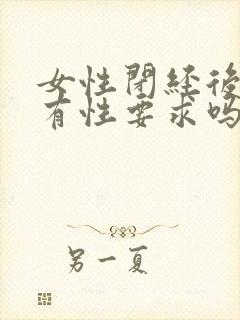 女性閉経後
有性要求吗
另一夏